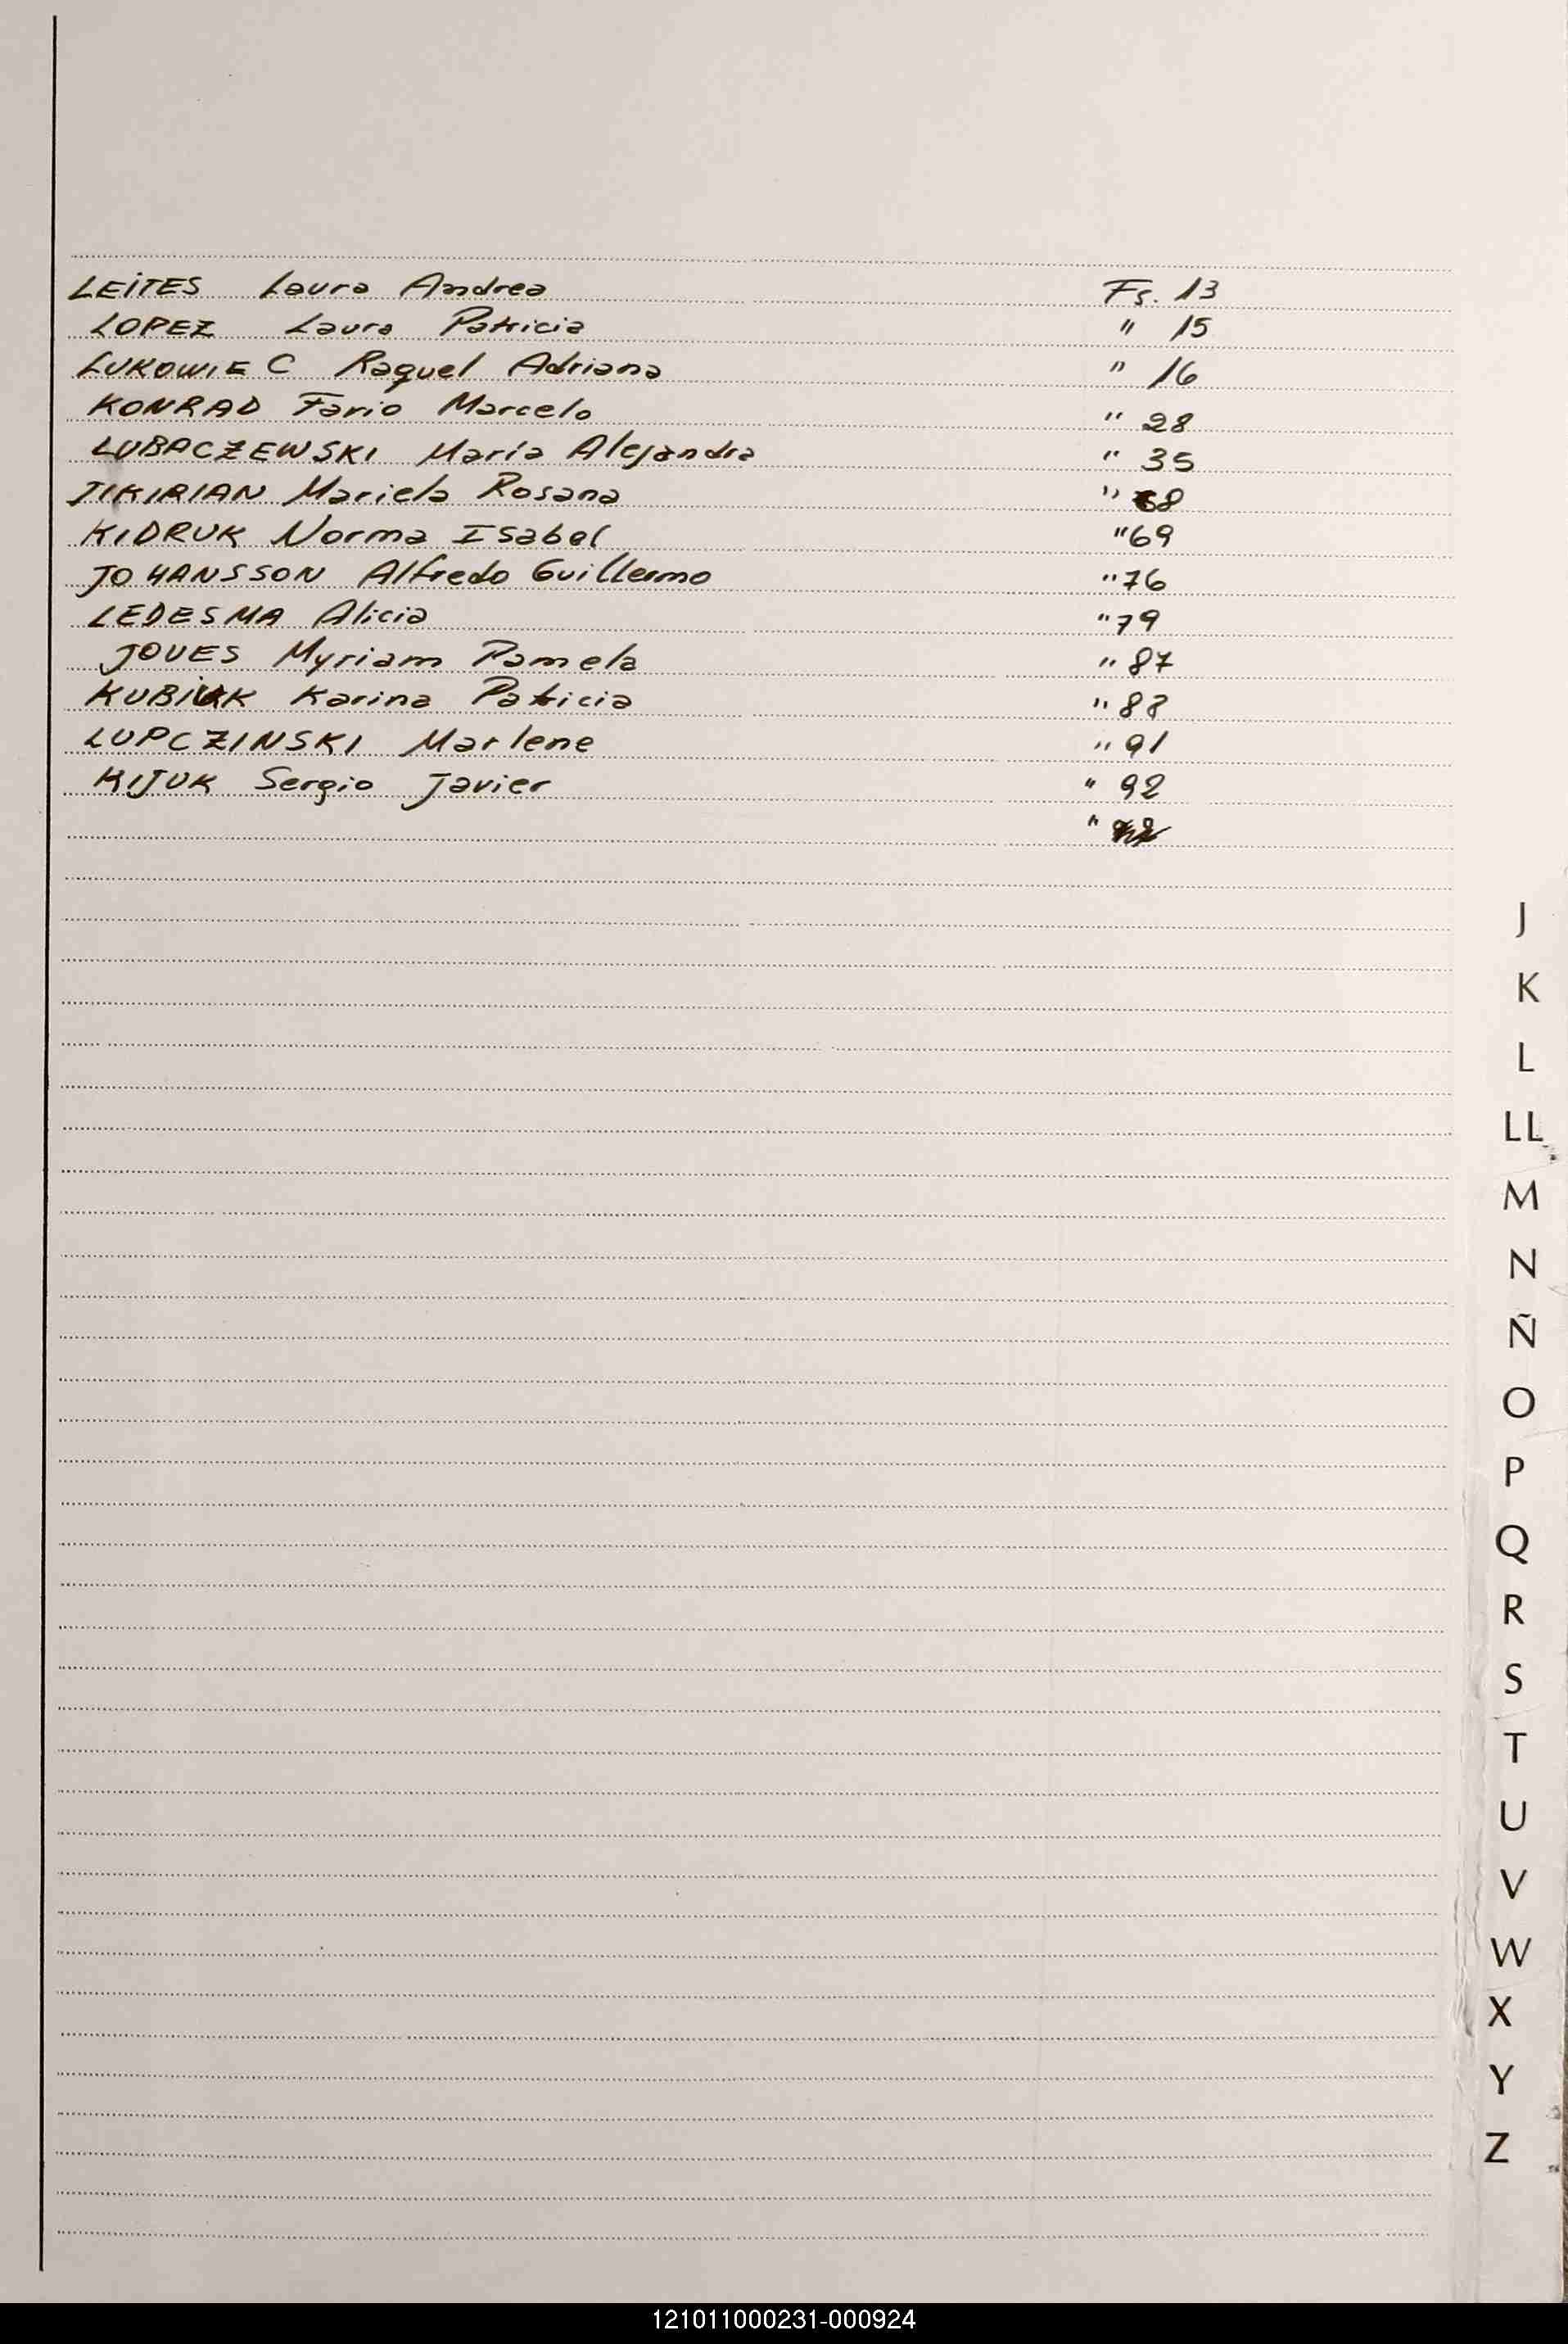 LEITES Laura Andrea Fs. 13
LOPEZ Laura Patricia " 15
LUKOWIEC Raquel Adriana " 16
KONRAD Fario Marcelo " 28
LUBACZEWSKI María Alejandra " 35
JIKIRIAN Mariela Rosana " 68
KIDRUK Norma Isabel " 69
JOHANSSON Alfredo Guillermo " 76
LEDESMA Alicia " 79
JOVES Myriam Pamela " 87
KUBIAK Karina Patricia " 88
LUPCZINSKI Marlene " 91
KIJUK Sergio Javier " 92
"
J
K
L
LL
M
N
Ñ
O
P
Q
R
S
T
U
V
W
X
Y
Z
121011000231-000924